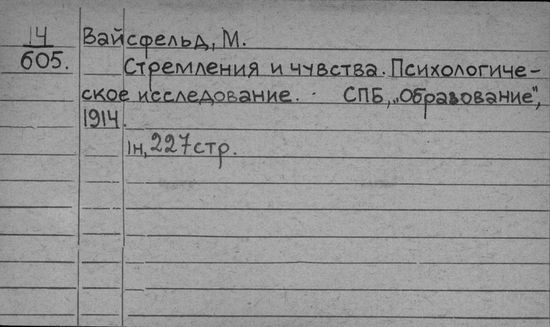 14 Вайсфельд, М.
605. Стремления и чувства. Психологиче-
ское исследование. СПБ, „Образование",
1914.
1н, 227 стр.